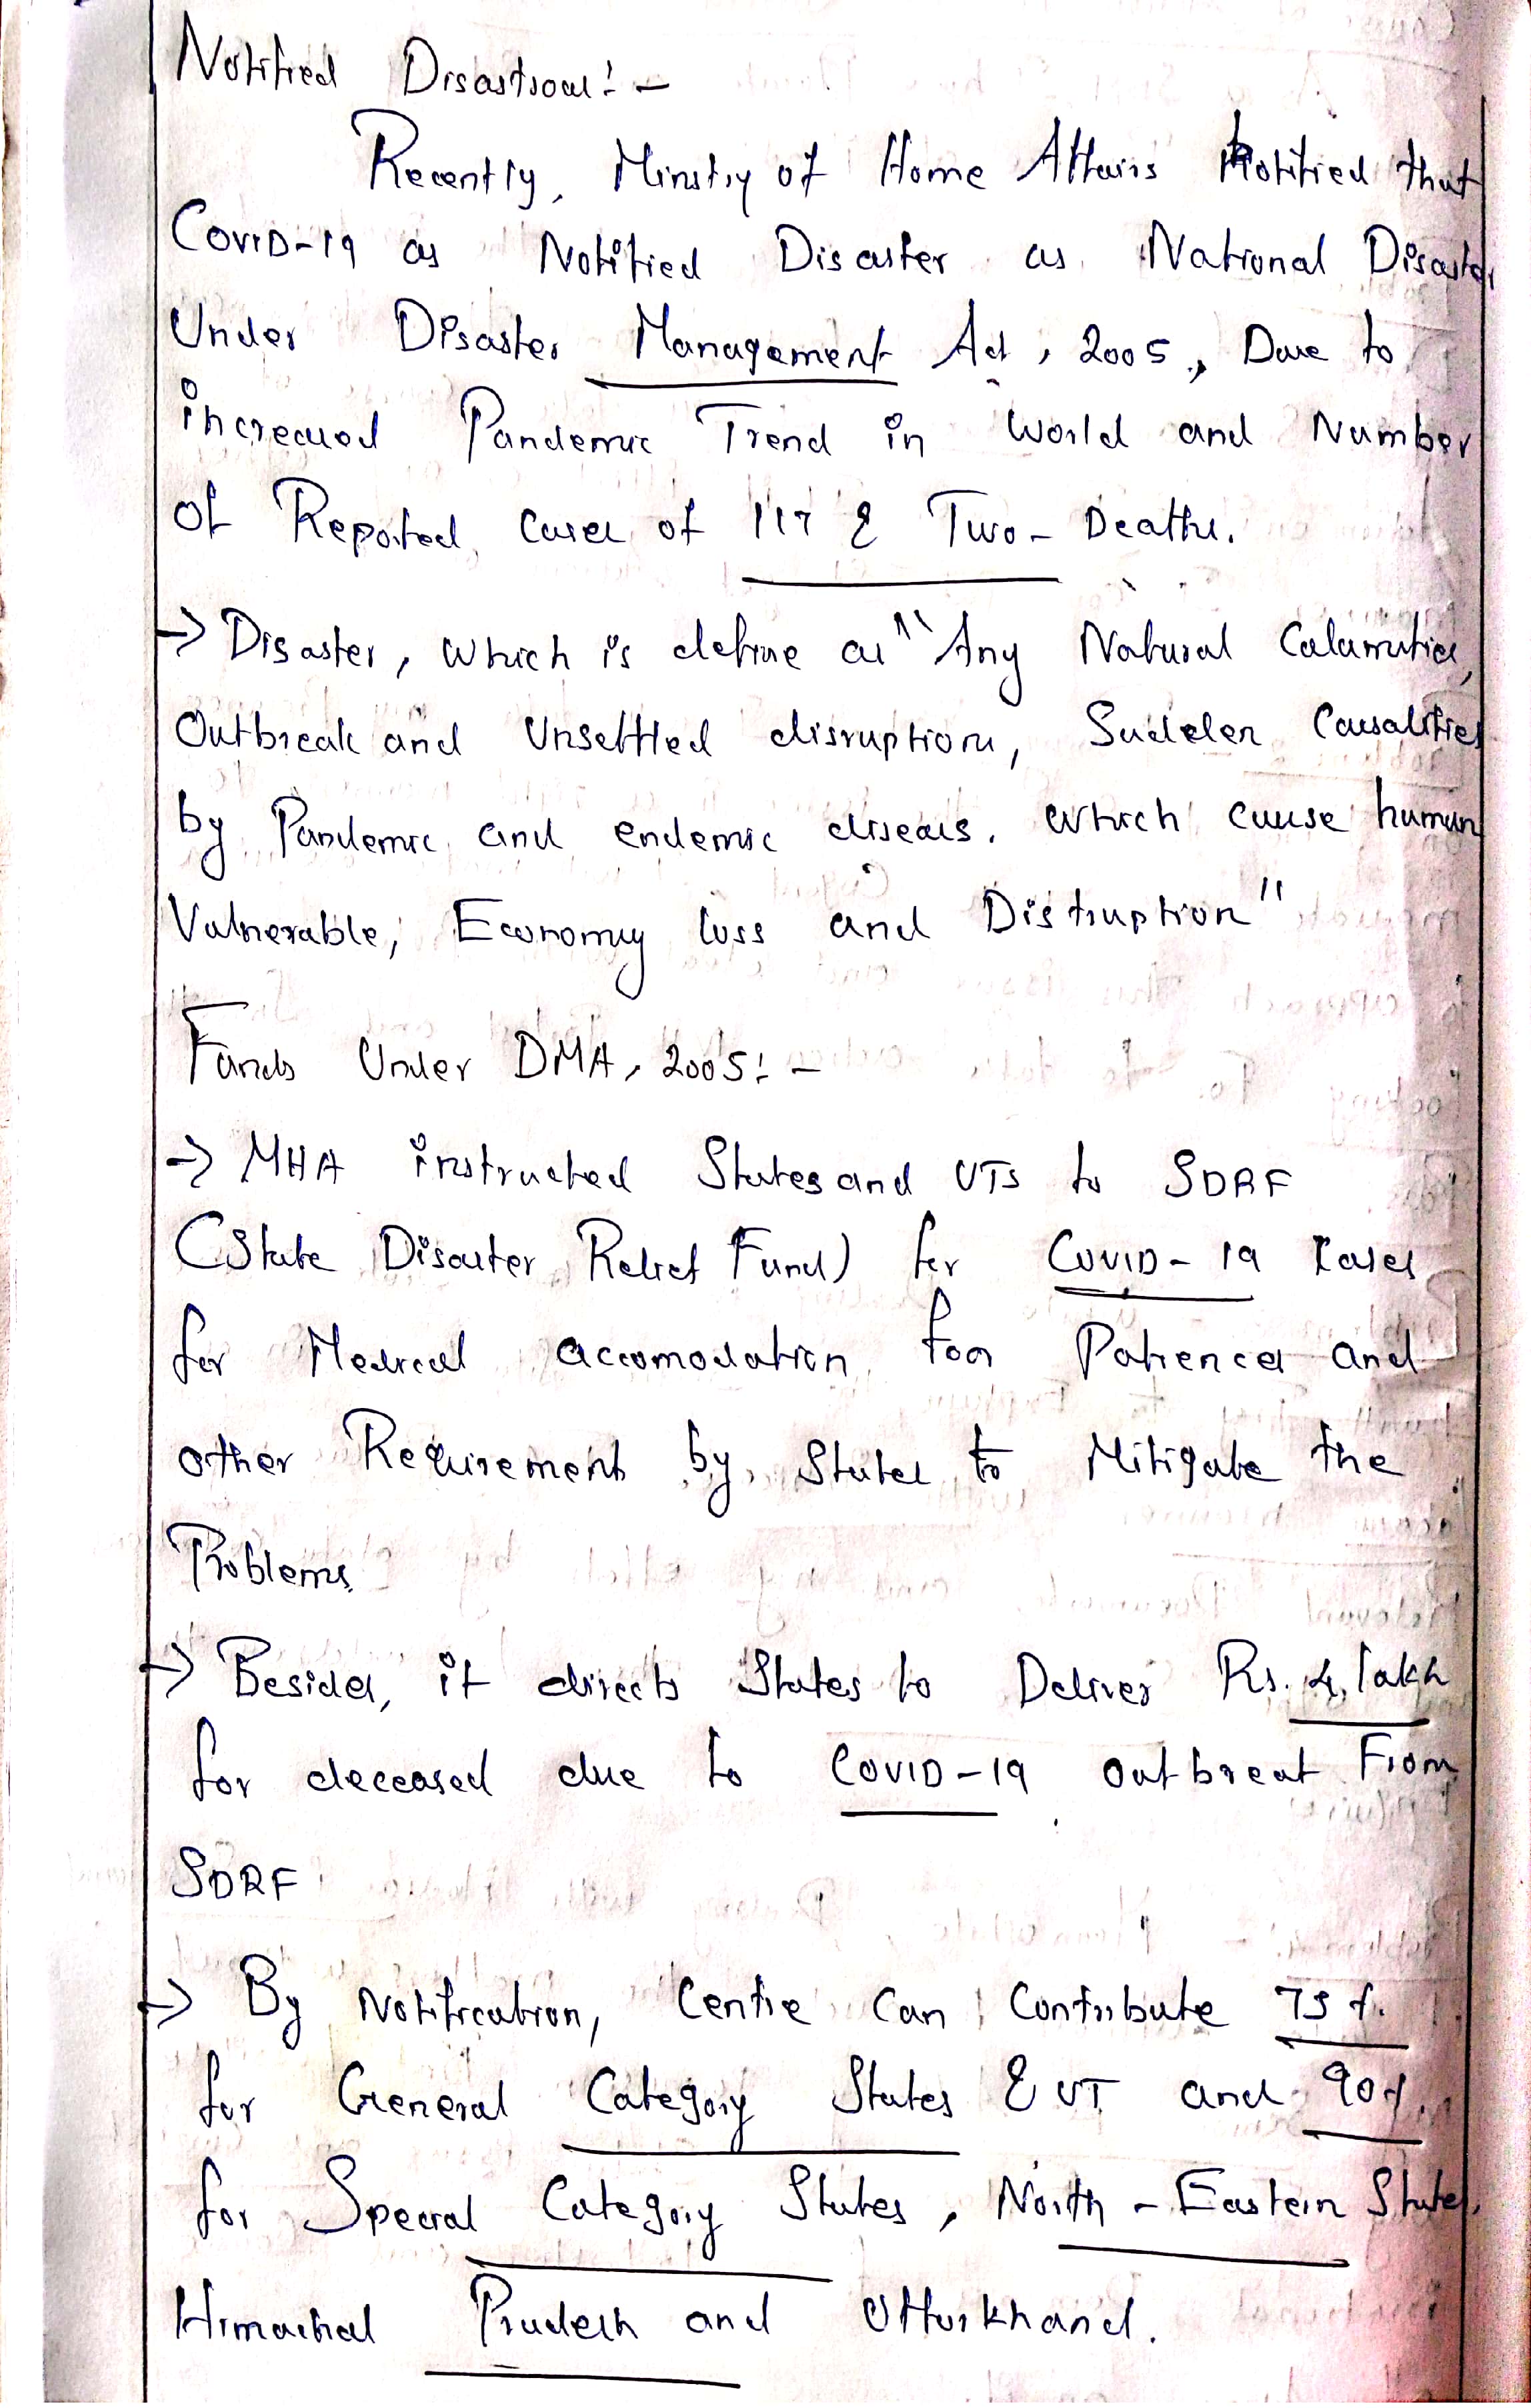 Notified Disastrous: -
Recently, Ministry of Home Affairs Notified that
COVID-19 as Notified Disaster as National Disaster
Under Disaster Management Act, 2005, Due to
increased Pandemic Trend in World and Number
of Reported cases of 117 & Two - Deaths.
-> Disaster, which is define as "Any Natural Calamities,
Outbreak and Unsettled disruptions, Sudden Causalities
by Pandemic and endemic diseases. which cause human
Vulnerable, Economy loss and Distruption"
Funds Under DMA, 2005: -
-> MHA instructed States and UTs to SDRF
(State Disaster Relief Fund) for COVID-19 Cases
for Medical accomodation for Patiences and
other Requirements by States to Mitigate the
Problems
-> Besides, it directs States to Deliver Rs. 4 lakh
for deceased due to COVID-19 outbreak From
SDRF
-> By Notification, Centre Can Contribute 75 %.
for General Category States & UT and 90%.
for Special Category States, North - Eastern States,
Himachal Pradesh and Utturkhand.